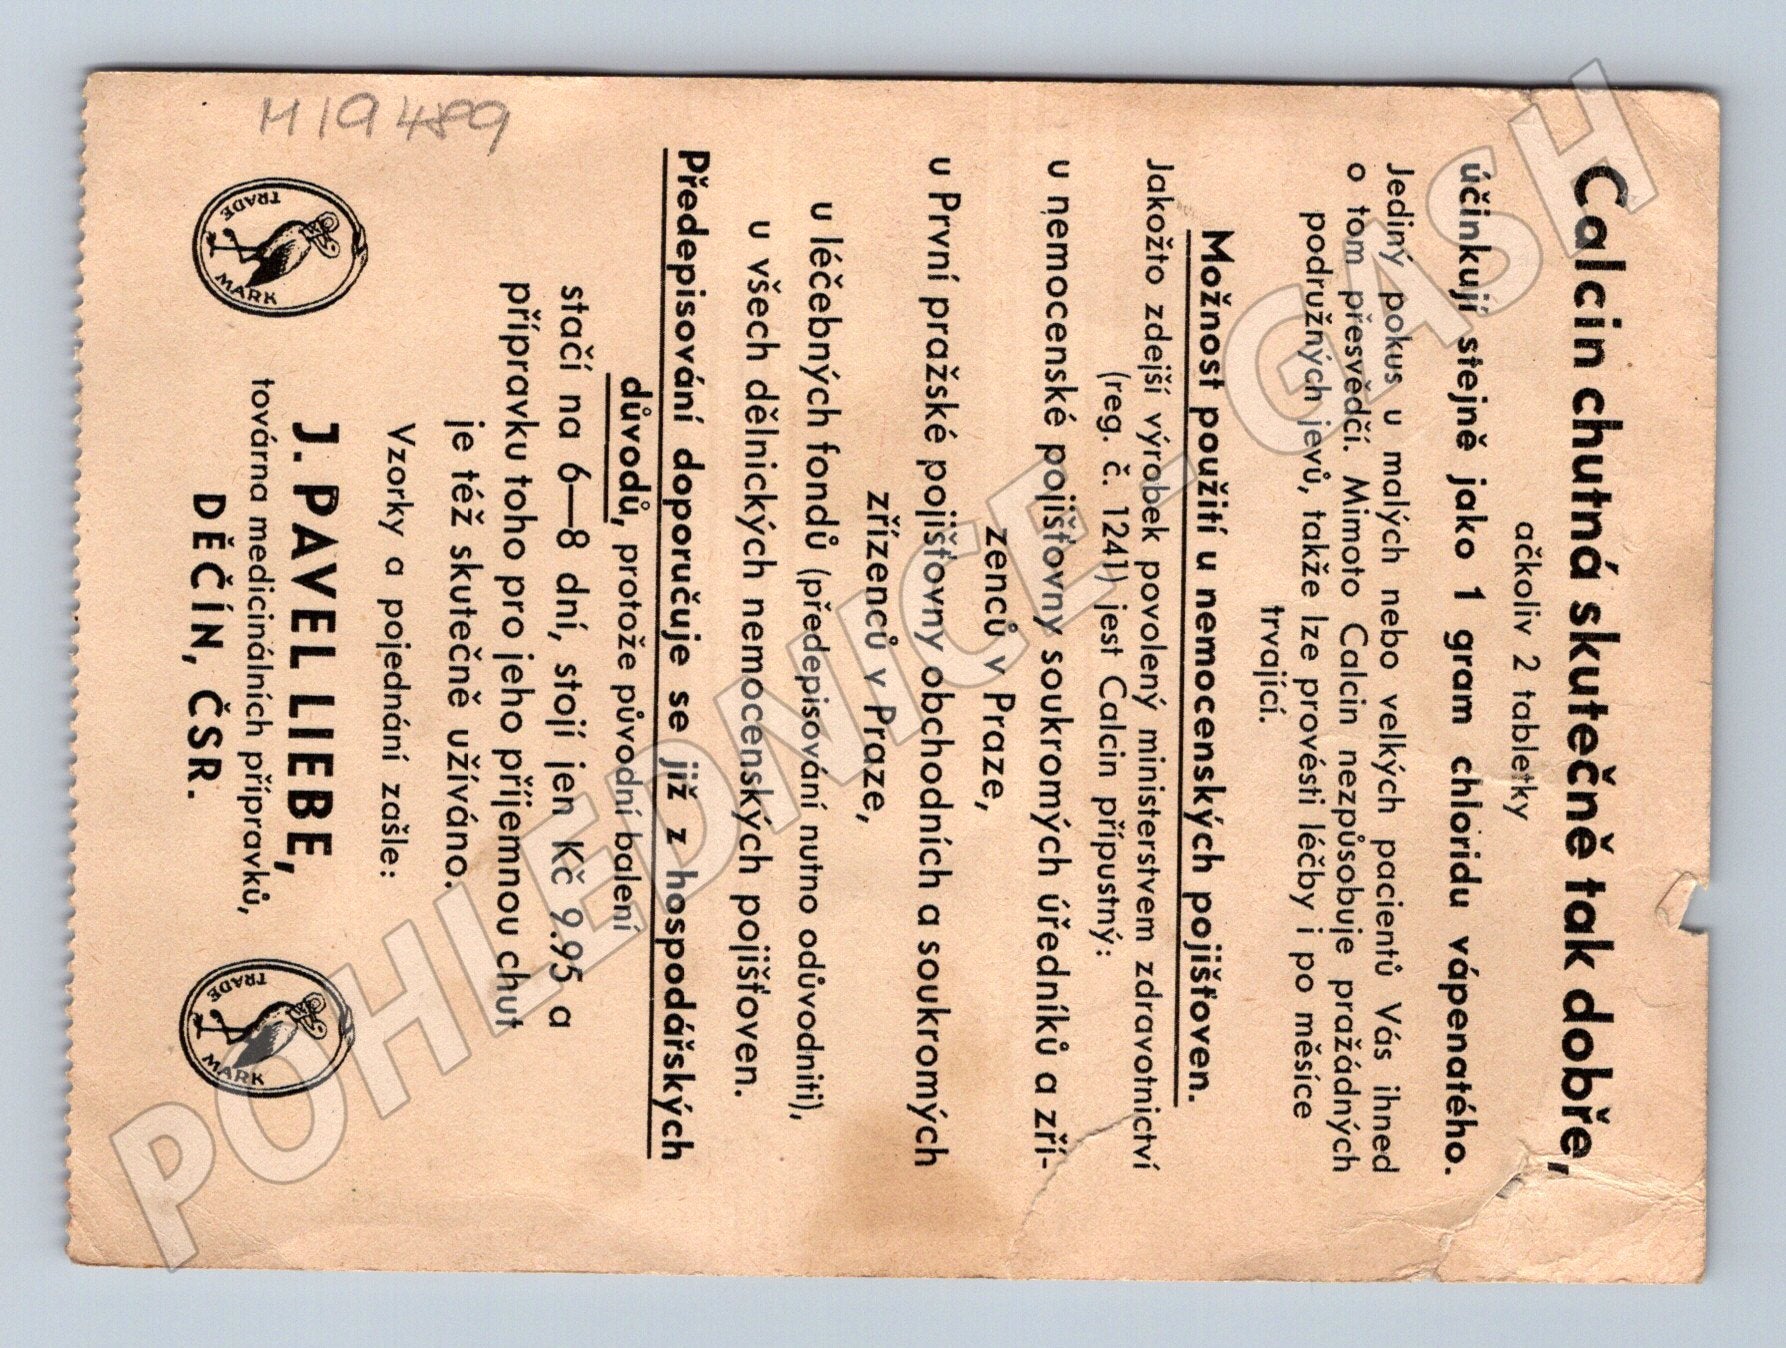 Calcin chutná skutečně tak dobře,
ačkoliv 2 tabletky
účinkují stejně jako 1 gram chloridu vápenatého.
Jediný pokus u malých nebo velkých pacientů Vás ihned
o tom přesvědčí. Mimoto Calcin nezpůsobuje pražádných
podružných jevů, takže lze provésti léčby i po měsíce
trvající.
Možnost použití u nemocenských pojišťoven.
Jakožto zdejší výrobek povolený ministerstvem zdravotnictví
(reg. č. 1241) jest Calcin přípustný:
u nemocenské pojišťovny soukromých úředníků a zří-
zenců v Praze,
u První pražské pojišťovny obchodních a soukromých
zřízenců v Praze,
u léčebných fondů (předepisování nutno odůvodniti),
u všech dělnických nemocenských pojišťoven.
Předepisování doporučuje se již z hospodářských
důvodů, protože původní balení
stačí na 6—8 dní, stojí jen Kč 9.95 a
přípravku toho pro jeho příjemnou chut
je též skutečně užíváno.
Vzorky a pojednání zašle:
J. PAVEL LIEBE,
továrna medicinálních přípravků,
DĚČÍN, ČSR.
TRADE MARK
TRADE MARK
M19489
POHLEDNICE-GASH